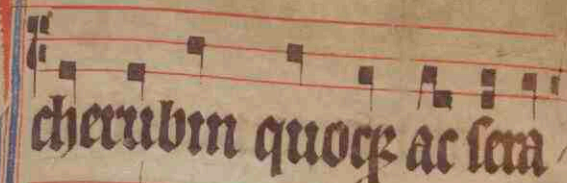 cherubin quoqꝫ ac sera